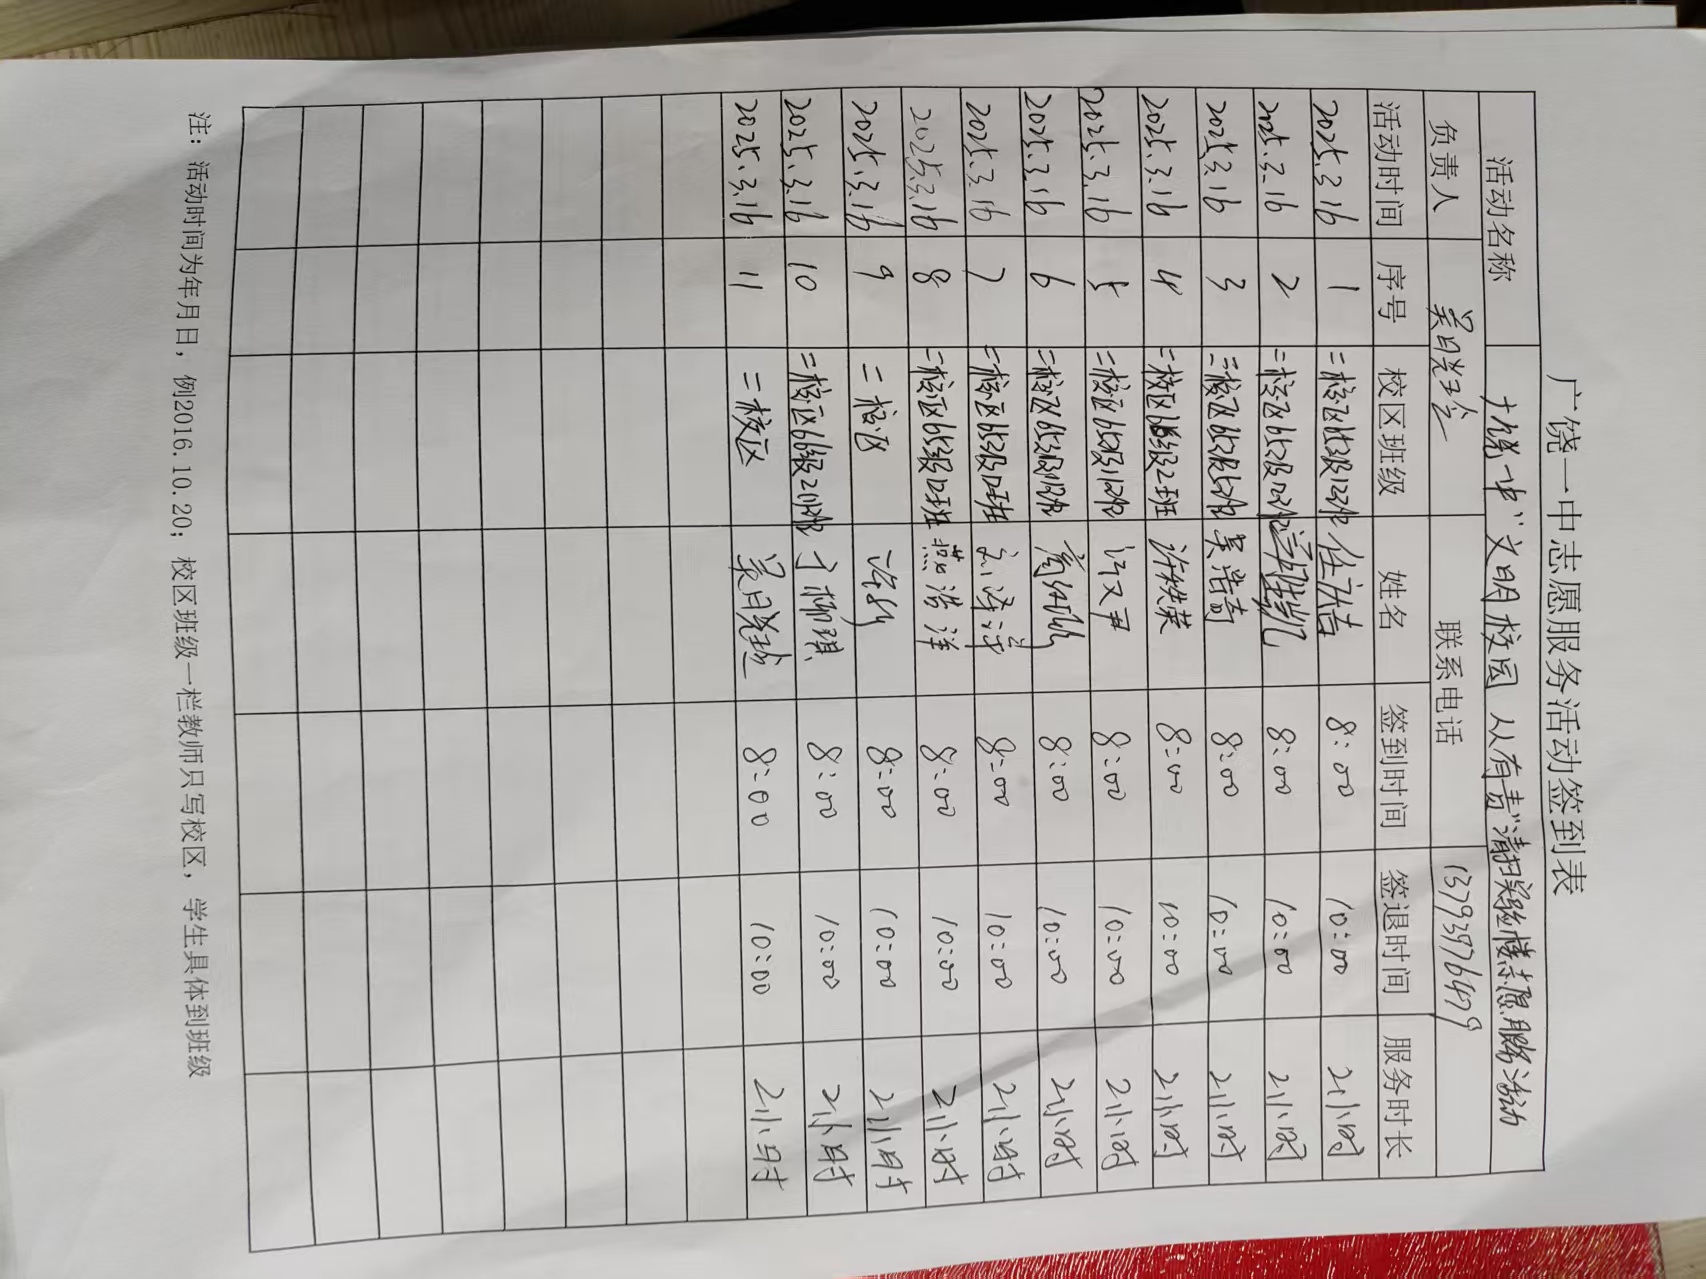 广饶一中志愿服务活动签到表
活动名称 广饶一中"文明校园 从有责"清扫实验楼志愿服务活动
负责人 联系电话 13793976479
活动时间 序号 校区班级 姓名 签到时间 签退时间 服务时长
2025.3.16 1 二校区 8:00 10:00 2小时
2025.3.16 2 二校区 8:00 10:00 2小时
2025.3.16 3 二校区 吴浩奇 8:00 10:00 2小时
2025.3.16 4 二校区 2班 许铁英 8:00 10:00 2小时
2025.3.16 5 二校区 8:00 10:00 2小时
2025.3.16 6 二校区 8:00 10:00 2小时
2025.3.16 7 二校区 8:00 10:00 2小时
2025.3.16 8 二校区65级12班 燕浩洋 8:00 10:00 2小时
2025.3.16 9 二校区 8:00 10:00 2小时
2025.3.16 10 二校区66级20班 8:00 10:00 2小时
2025.3.16 11 二校区 8:00 10:00 2小时
注：活动时间为年月日，例2016.10.20；校区班级一栏教师只写校区，学生具体到班级